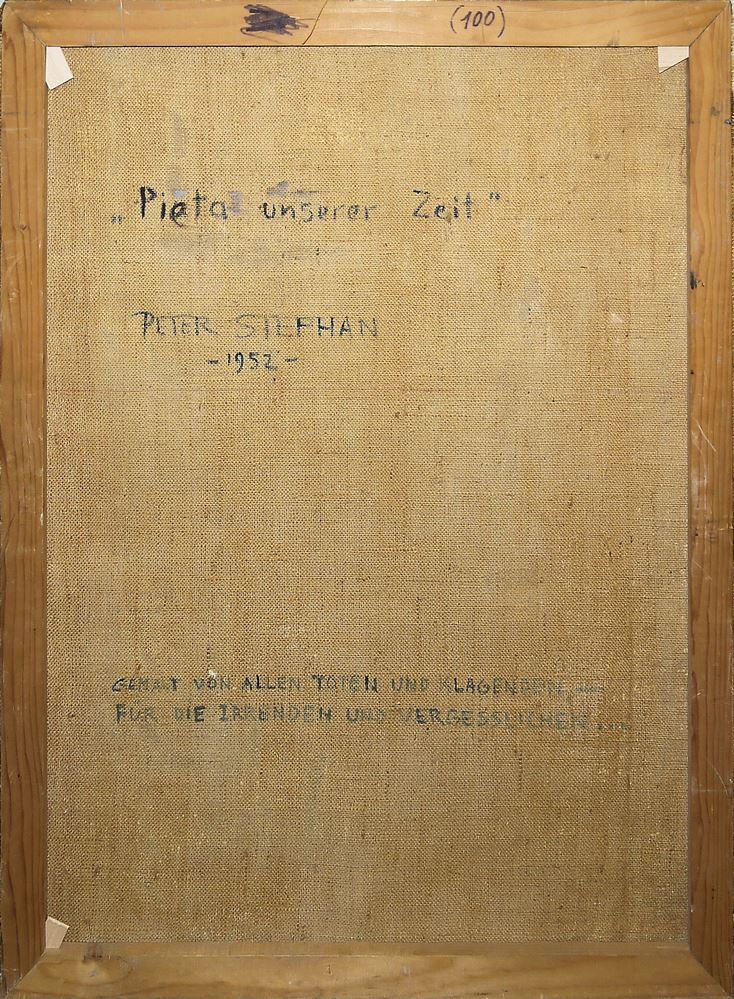 (100)
„Pieta unserer Zeit"
PETER STEPHAN
- 1952 -
GEMALT VON ALLEN TOTEN UND KLAGENDEN, ...
FÜR DIE IRRENDEN UND VERGESSLICHEN ...